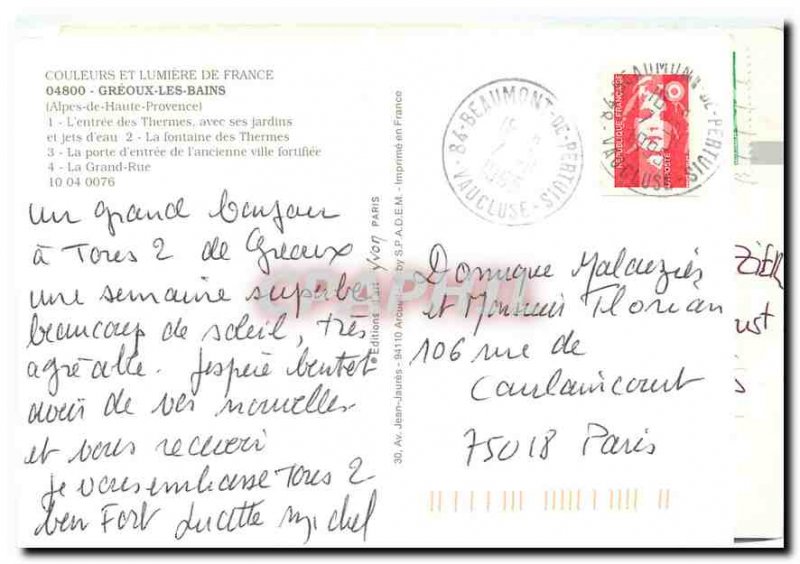 COULEURS ET LUMIÈRE DE FRANCE
04800 - GRÉOUX-LES-BAINS
(Alpes-de-Haute-Provence)
1 - L'entrée des Thermes, avec ses jardins
et jets d'eau 2 - La fontaine des Thermes
3 - La porte d'entrée de l'ancienne ville fortifiée
4 - La Grand-Rue
10 04 0076
un grand bonjour
à Tous 2 de Gréoux
une semaine superbe
beaucoup de soleil, très
agréable. J'espère bientot
avoir de vos nouvelles
et vous recevoir
Je vous embrasse Tous 2
bien Fort Lucette Michel
Editions Yvon PARIS
30, Av. Jean-Jaurès - 94110 by S.P.A.D.E.M. - Imprimé en France
84-BEAUMONT-DE-PERTUIS
VAUCLUSE
RÉPUBLIQUE FRANÇAISE
LA POSTE
84-BEAUMONT-DE-PERTUIS
VAUCLUSE
Dominique Malauziés
et Monsieur Florian
106 rue de
Caulaincourt
75018 Paris
CPAPHIL